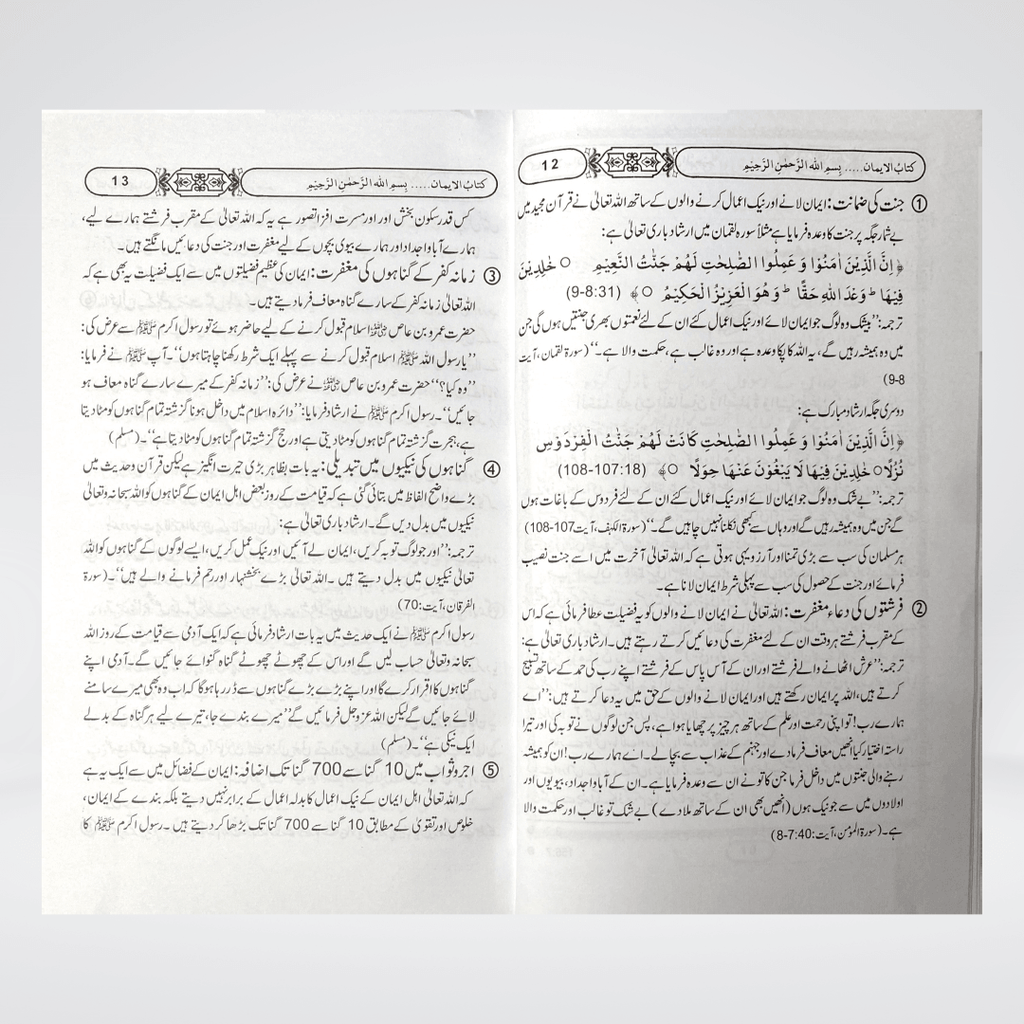 12 کتاب الایمان..... بسم اللہ الرَّحمٰنِ الرَّحِیْمِ
① جنت کی ضمانت: ایمان لانے اور نیک اعمال کرنے والوں کے ساتھ اللہ تعالیٰ نے قرآن مجید میں
بے شمار جگہ پر جنت کا وعدہ فرمایا ہے مثلاً سورہ لقمان میں ارشاد باری تعالیٰ ہے:
﴿ اِنَّ الَّذِیْنَ اٰمَنُوْا وَ عَمِلُوا الصّٰلِحٰتِ لَهُمْ جَنّٰتُ النَّعِیْمِ ○ خٰلِدِیْنَ
فِیْهَا ط وَعْدَ اللّٰهِ حَقًّا ط وَهُوَ الْعَزِیْزُ الْحَكِیْمُ ○ ﴾ (9-8:31)
ترجمہ: ”بیشک وہ لوگ جو ایمان لائے اور نیک اعمال کئے ان کے لئے نعمتوں بھری جنتیں ہوں گی جن
میں وہ ہمیشہ رہیں گے، یہ اللہ کا پکا وعدہ ہے اور وہ غالب ہے، حکمت والا ہے۔“ (سورۃ لقمان، آیت
9-8)
دوسری جگہ ارشاد مبارک ہے:
﴿ اِنَّ الَّذِیْنَ اٰمَنُوْا وَ عَمِلُوا الصّٰلِحٰتِ كَانَتْ لَهُمْ جَنّٰتُ الْفِرْدَوْسِ
نُزُلًا ○ خٰلِدِیْنَ فِیْهَا لَا یَبْغُوْنَ عَنْهَا حِوَلًا ○ ﴾ (108-107:18)
ترجمہ: ”بے شک وہ لوگ جو ایمان لائے اور نیک اعمال کئے ان کے لئے فردوس کے باغات ہوں
گے جن میں وہ ہمیشہ رہیں گے اور وہاں سے کبھی نکلنا نہیں چاہیں گے۔“ (سورۃ الکہف، آیت 107-108)
ہر مسلمان کی سب سے بڑی تمنا اور آرزو یہی ہوتی ہے کہ اللہ تعالیٰ آخرت میں اسے جنت نصیب
فرمائے اور جنت کے حصول کی سب سے پہلی شرط ایمان لانا ہے۔
② فرشتوں کی دعاء مغفرت: اللہ تعالیٰ نے ایمان لانے والوں کو یہ فضیلت عطا فرمائی ہے کہ اس
کے مقرب فرشتے ہر وقت ان کے لئے مغفرت کی دعائیں کرتے رہتے ہیں۔ ارشاد باری تعالیٰ ہے:
ترجمہ: ”عرش اٹھانے والے فرشتے اور ان کے آس پاس کے فرشتے اپنے رب کی حمد کے ساتھ تسبیح
کرتے ہیں، اللہ پر ایمان رکھتے ہیں اور ایمان لانے والوں کے حق میں یہ دعا کرتے ہیں: ”اے
ہمارے رب! تو اپنی رحمت اور علم کے ساتھ ہر چیز پر چھایا ہوا ہے، پس جن لوگوں نے توبہ کی اور تیرا
راستہ اختیار کیا انھیں معاف فرما دے اور جہنم کے عذاب سے بچا لے۔ اے ہمارے رب! ان کو ہمیشہ
رہنے والی جنتوں میں داخل فرما جن کا تو نے ان سے وعدہ فرمایا ہے۔ ان کے آباو اجداد، بیویوں اور
اولادوں میں سے جو نیک ہوں (انھیں بھی ان کے ساتھ ملا دے) بے شک تو غالب اور حکمت والا
ہے۔ (سورۃ المؤمن، آیت: 7:40-8)
13 کتاب الایمان..... بسم اللہ الرَّحمٰنِ الرَّحِیْمِ
کس قدر سکون بخش اور اور مسرت افزا تصور ہے یہ کہ اللہ تعالیٰ کے مقرب فرشتے ہمارے لیے،
ہمارے آباو اجداد اور ہمارے بیوی بچوں کے لیے مغفرت اور جنت کی دعائیں مانگتے ہیں۔
③ زمانہ کفر کے گناہوں کی مغفرت: ایمان کی عظیم فضیلتوں میں سے ایک فضیلت یہ بھی ہے کہ
اللہ تعالیٰ زمانہ کفر کے سارے گناہ معاف فرما دیتے ہیں۔
حضرت عمرو بن عاص رضی اللہ عنہ اسلام قبول کرنے کے لیے حاضر ہوئے تو رسول اکرم ﷺ سے عرض کی:
”یا رسول اللہ ﷺ اسلام قبول کرنے سے پہلے ایک شرط رکھنا چاہتا ہوں“۔ آپ ﷺ نے فرمایا:
”وہ کیا؟“ حضرت عمرو بن عاص رضی اللہ عنہ نے عرض کی: ”زمانہ کفر کے میرے سارے گناہ معاف ہو
جائیں“۔ رسول اکرم ﷺ نے ارشاد فرمایا: ”دائرہ اسلام میں داخل ہونا گزشتہ تمام گناہوں کو مٹا دیتا
ہے، ہجرت گزشتہ تمام گناہوں کو مٹا دیتی ہے اور حج گزشتہ تمام گناہوں کو مٹا دیتا ہے“۔ (مسلم)
④ گناہوں کی نیکیوں میں تبدیلی: یہ بات بظاہر بڑی حیرت انگیز ہے لیکن قرآن و حدیث میں
بڑے واضح الفاظ میں بتائی گئی ہے کہ قیامت کے روز بعض اہل ایمان کے گناہوں کو اللہ سبحانہ وتعالیٰ
نیکیوں میں بدل دیں گے۔ ارشاد باری تعالیٰ ہے:
ترجمہ: ”اور جو لوگ توبہ کریں، ایمان لے آئیں اور نیک عمل کریں، ایسے لوگوں کے گناہوں کو اللہ
تعالیٰ نیکیوں میں بدل دیتے ہیں۔ اللہ تعالیٰ بڑے بخشنہار اور رحم فرمانے والے ہیں“۔ (سورۃ
الفرقان، آیت: 70)
رسول اکرم ﷺ نے ایک حدیث میں یہ بات ارشاد فرمائی ہے کہ ایک آدمی سے قیامت کے روز اللہ
سبحانہ وتعالیٰ حساب لیں گے اور اس کے چھوٹے چھوٹے گناہ گنوائے جائیں گے۔ آدمی اپنے
گناہوں کا اقرار کرے گا اور اپنے بڑے بڑے گناہوں سے ڈر رہا ہوگا کہ اب وہ بھی میرے سامنے
لائے جائیں گے لیکن اللہ عزوجل فرمائیں گے ”میرے بندے جا، تیرے لیے ہر گناہ کے بدلے
ایک نیکی ہے“۔ (مسلم)
⑤ اجر و ثواب میں 10 گنا سے 700 گنا تک اضافہ: ایمان کے فضائل میں سے ایک یہ ہے
کہ اللہ تعالیٰ اہل ایمان کے نیک اعمال کا بدلہ اعمال کے برابر نہیں دیتے بلکہ بندے کے ایمان،
خلوص اور تقویٰ کے مطابق 10 گنا سے 700 گنا تک بڑھا کر دیتے ہیں۔ رسول اکرم ﷺ کا